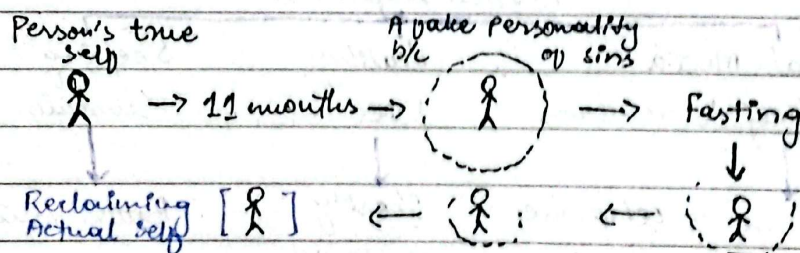 Person's true
self
→ 11 months →
A fake Personality
b/c of sins
→ Fasting
Reclaiming
Actual self